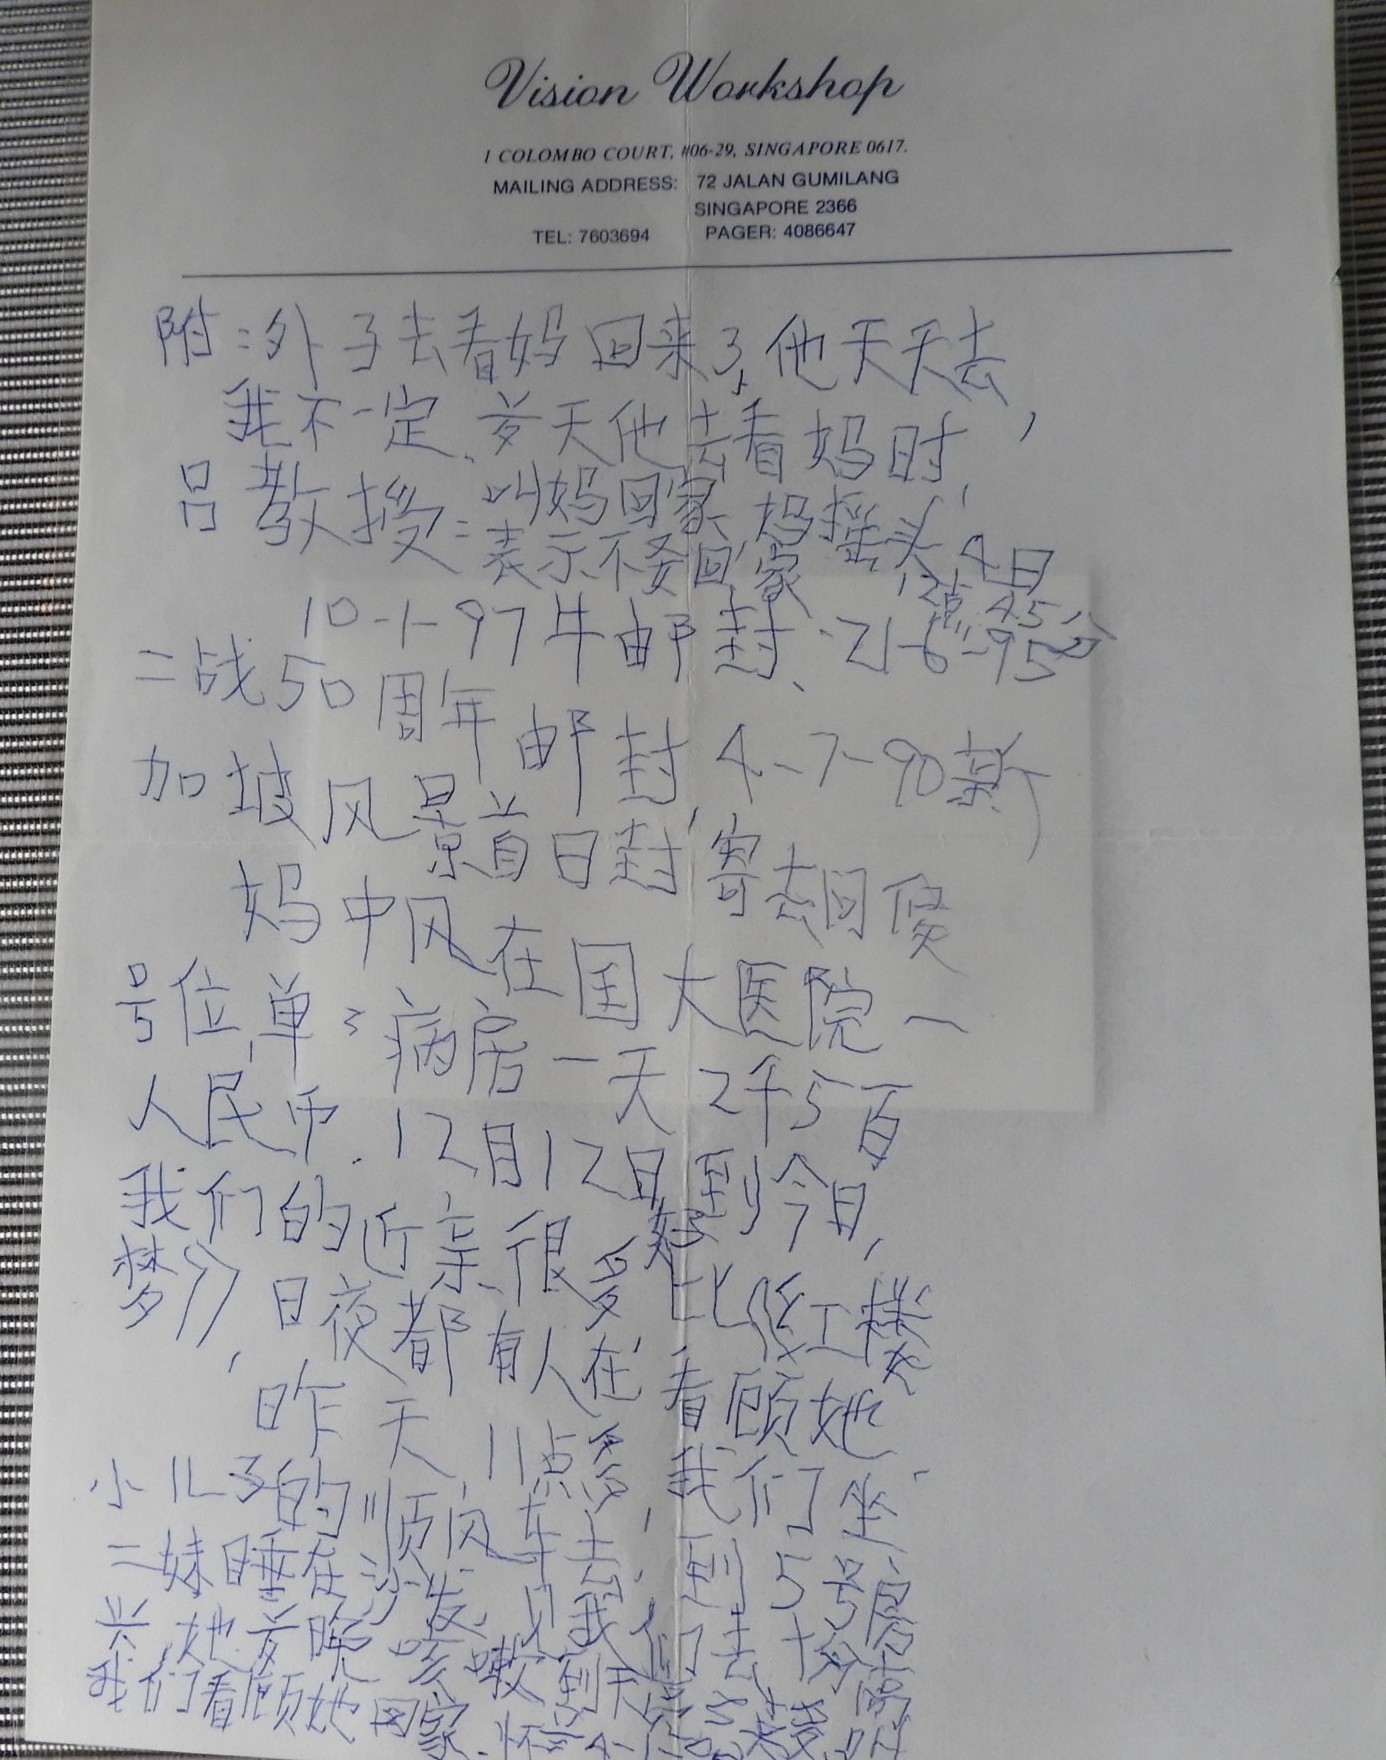 Vision Workshop
1 COLOMBO COURT, #06-29, SINGAPORE 0617.
MAILING ADDRESS: 72 JALAN GUMILANG
SINGAPORE 2366
TEL: 7603694 PAGER: 4086647
附:外子去看妈回来了,他天天去,
我不一定、前天他去看妈时,
叫妈回家,妈摇头,4日
吕教授:表示不要回家 12点45分
10-1-97牛邮封、21-6-95
二战50周年邮封,4-7-90新
加坡风景首日封,寄去问候
妈中风在国大医院一
号位,单:病房一天2千5百
人民币.12月12日到今日,
我们的近亲很多(好比红楼
梦),日夜都有人在看顾她.
昨天,11点多,我们坐
小儿子的顺风车去,到5号房
二妹睡在沙发,见我们去十分高
兴,她前晚咳嗽到天亮
我们看顾她回家.